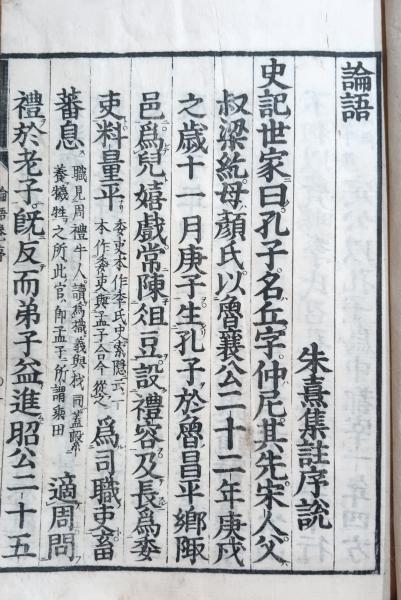 論語
朱熹集註序說
史記世家曰孔子名丘字仲尼其先宋人父
叔梁紇母顏氏以魯襄公二十二年庚戌
之歲十一月庚子生孔子於魯昌平鄉陬
邑爲兒嬉戲常陳俎豆設禮容及長爲委
吏料量平 委吏本作季氏史索隱云一本作委吏與孟子合今從之 爲司職吏畜
蕃息 職見周禮牛人讀爲樴義與杙同蓋繫養犧牲之所此官卽孟子所謂乘田 適周問
禮於老子旣反而弟子益進昭公二十五